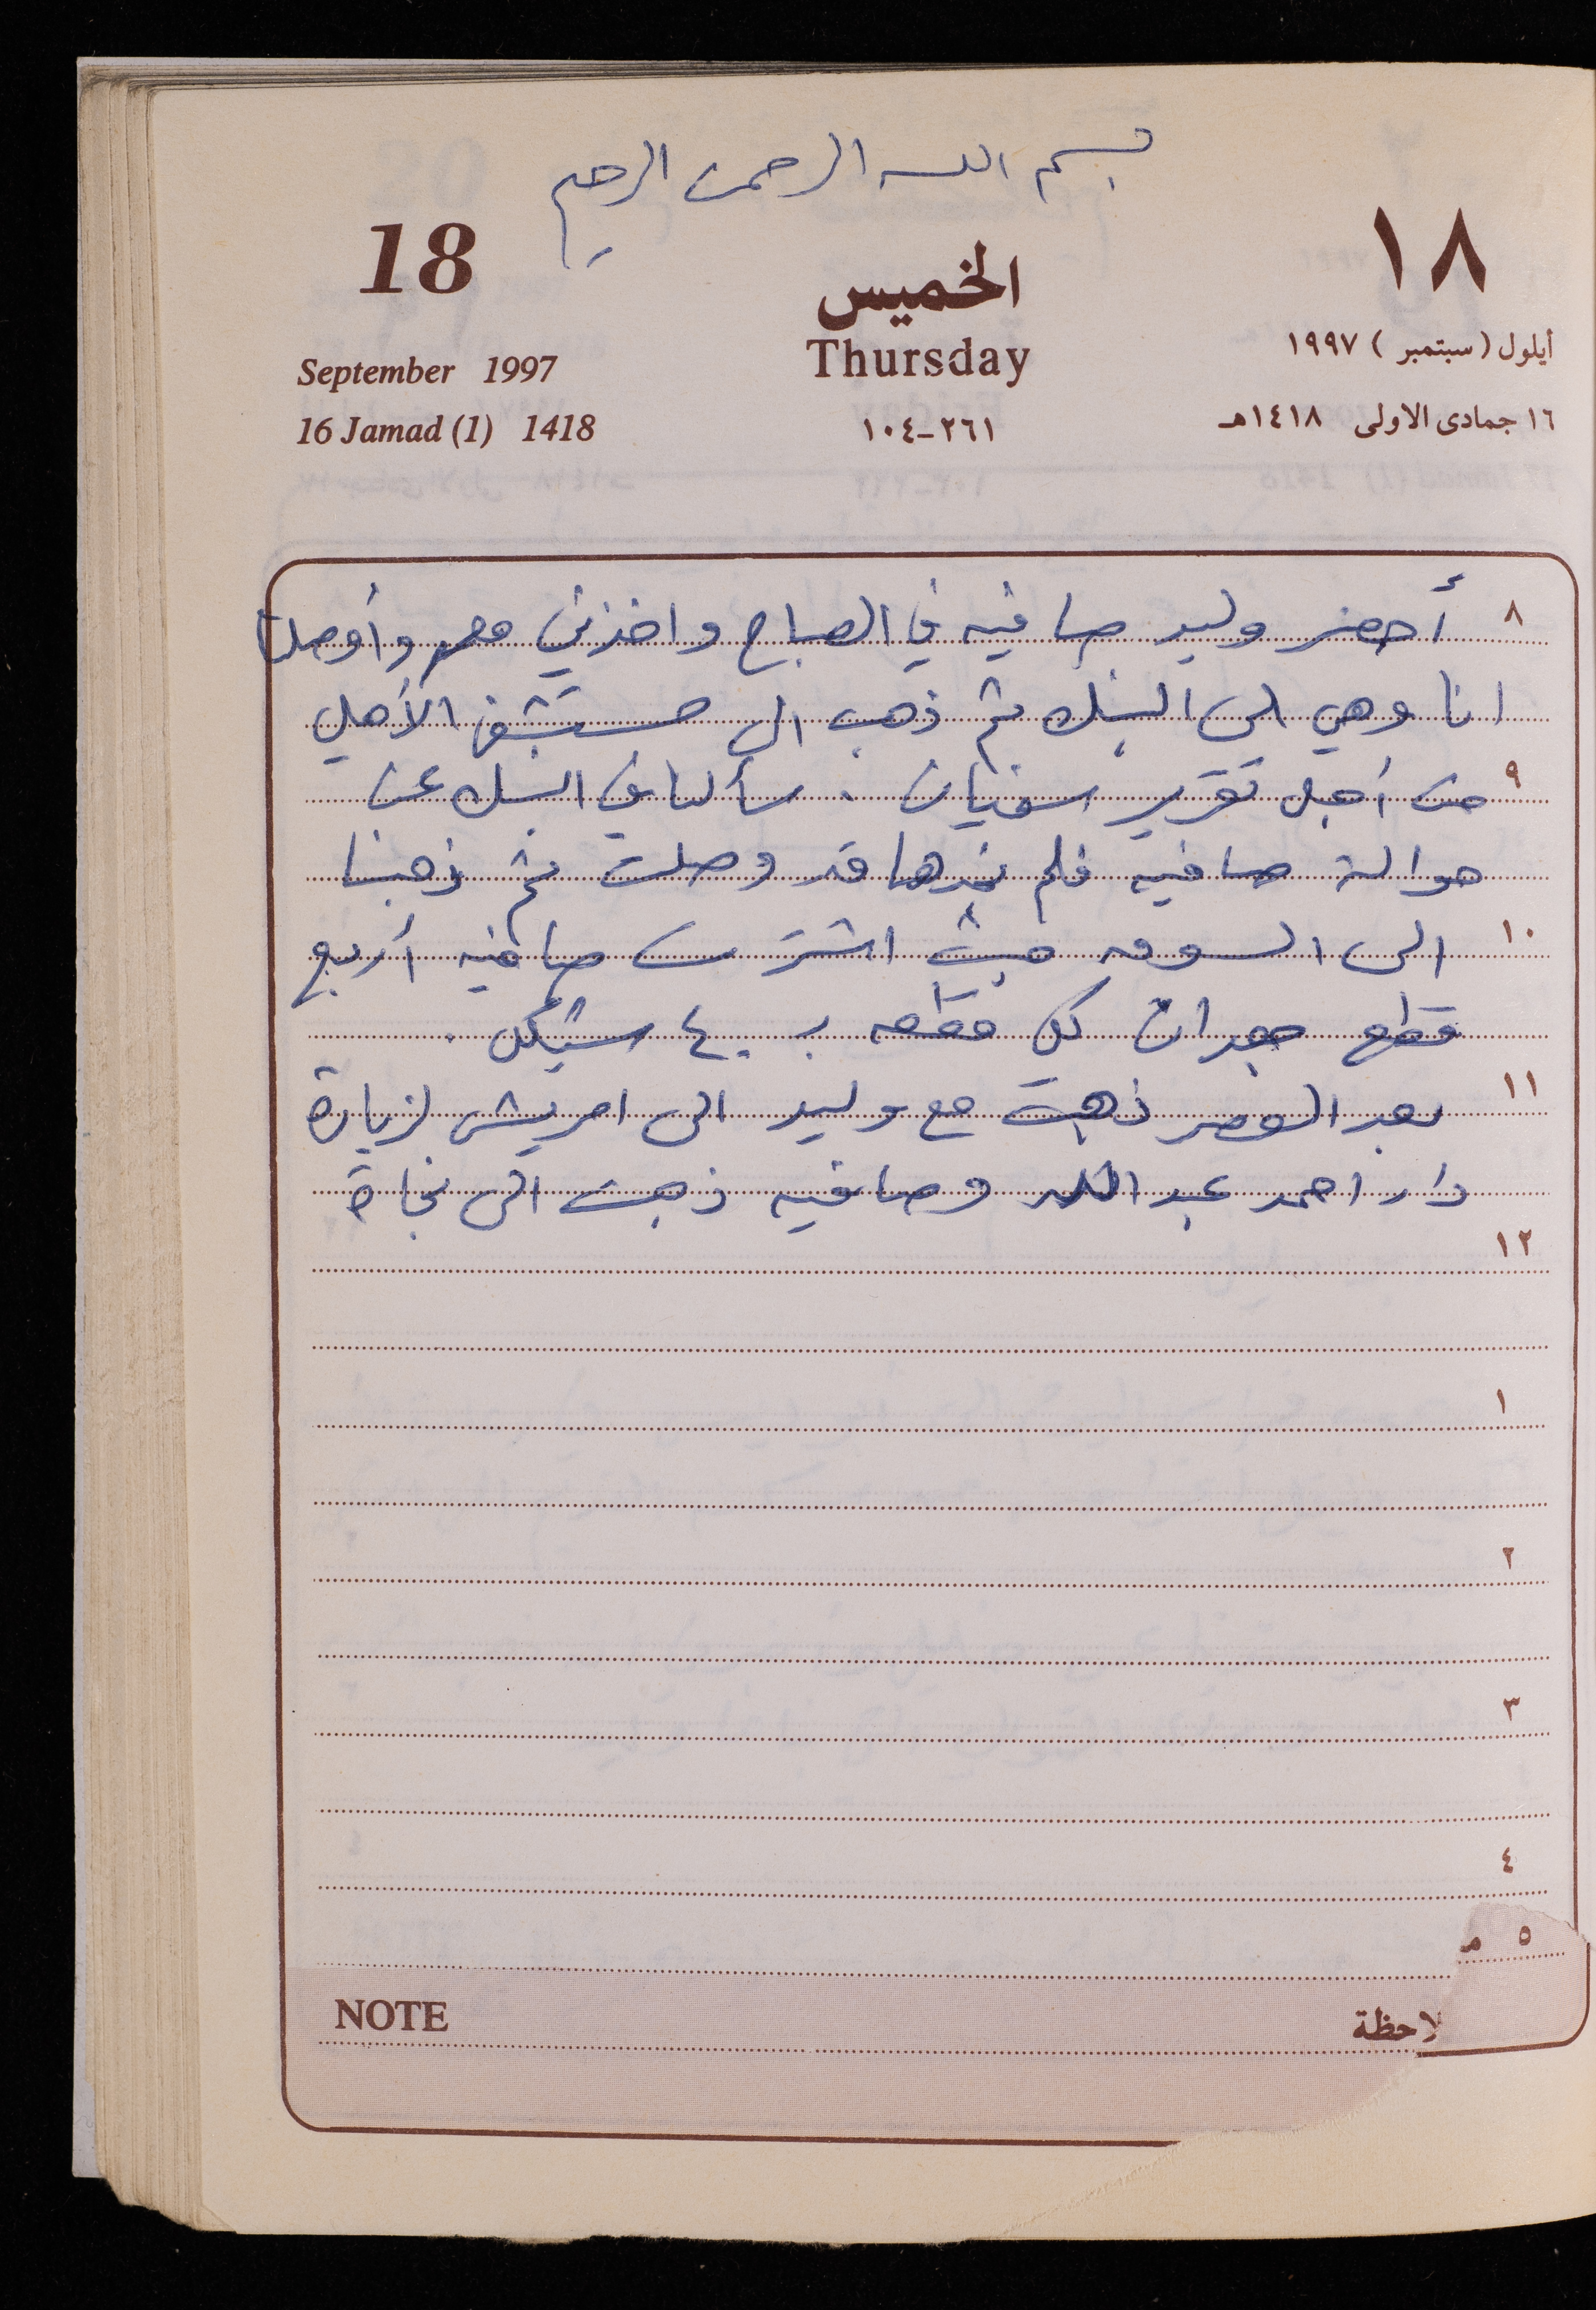 بسم الله الرحمن الرحيم
18
الخميس
١٨
September 1997
Thursday
أيلول (سبتمبر) ١٩٩٧
16 Jamad (1) 1418
٢٦١-١٠٤
١٦ جمادى الاولى ١٤١٨هـ
٨ أحضر وليد صافيه في الصباح واخذني معه وأوصلنا
انا وهي الى البنك ثم ذهب الى مستشفى الأهلي
٩ من أجل تقرير اسنيان . سألنا في البنك عن
حوالة صافيه فلم نجدها قد وصلت ثم ذهبنا
١٠ الى السوق حيث اشترت صافيه أربع
قطع كل قطعه ب ٤٠ شيكل .
١١ بعد العصر ذهبت مع وليد الى امريش لزيارة
دار احمد عبد الله وصافيه ذهبت الى نجاة
١٢
١
٢
٣
٤
٥ م
NOTE
لاحظة